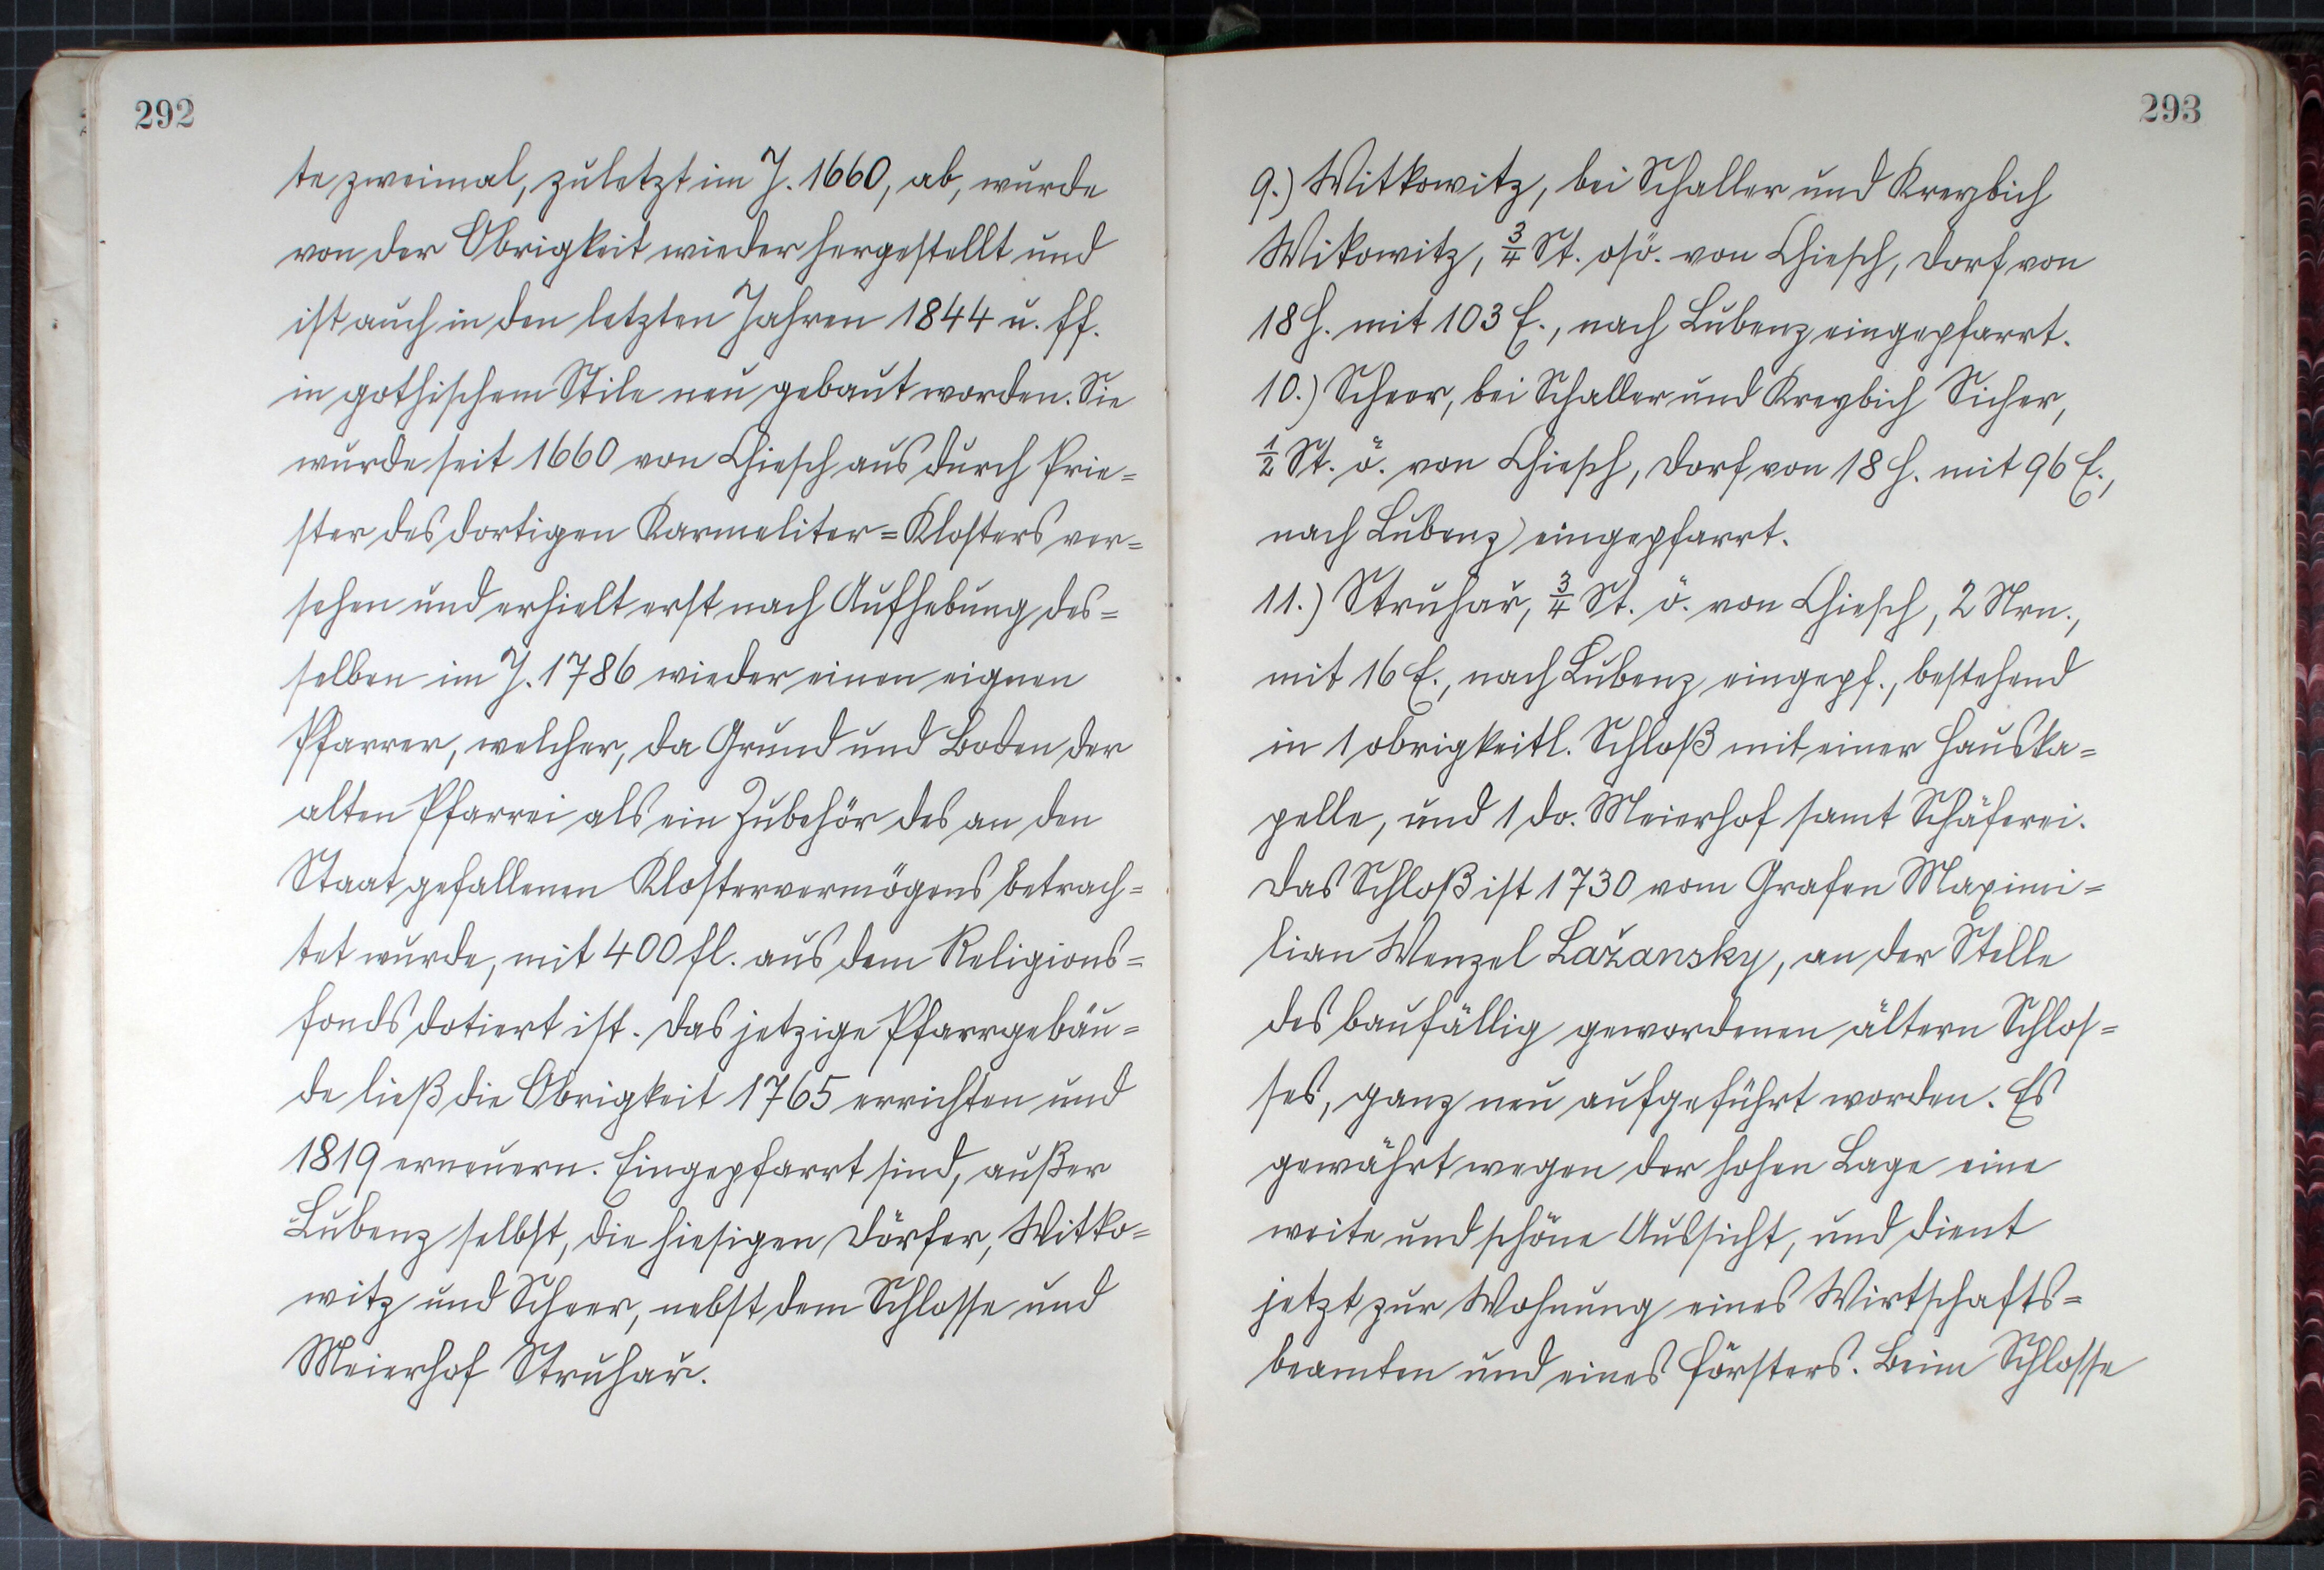 292
te zweimal, zuletzt im J. 1660, ab, wurde
von der Obrigkeit wieder hergestellt und
ist auch in den letzten Jahren 1844 u. ff.
in gothischem Stile neu gebaut worden. Sie
wurde seit 1660 von Chiesch aus durch Prie=
ster des dortigen Karmeliter=Klosters ver=
sehen und erhielt erst nach Aufhebung des=
selben im J. 1786 wieder einen eignen
Pfarrer, welcher, da Grund und Boden der
alten Pfarrei als ein Zubehör des an den
Staat gefallenen Klostervermögens betrach=
tet wurde, mit 400 fl. aus dem Religions=
fonds dotiert ist. Das jetzige Pfarrgebäu=
de ließ die Obrigkeit 1765 errichten und
1819 erneuern. Eingepfarrt sind, außer
Lubenz selbst, die hiesigen Dörfer, Witko=
witz und Scheer, nebst dem Schlosse und
Meierhof Struhař.
293
9.) Witkowitz, bei Schaller und Kreybich
Wikowitz, 3/4 St. osö. von Chiesch, Dorf von
18 H. mit 103 E., nach Lubenz eingepfarrt.
10.) Scheer, bei Schaller und Kreybich Sicher,
1/2 St. ö. von Chiesch, Dorf von 18 H. mit 96 E.,
nach Lubenz eingepfarrt.
11.) Struhař, 3/4 St. ö. von Chiesch, 2 Nrn.,
mit 16 E., nach Lubenz eingepf., bestehend
in 1 obrigkeitl. Schloß mit einer Hauska=
pelle, und 1 do. Meierhof samt Schäferei.
Das Schloß ist 1730 vom Grafen Maximi=
lian Wenzel Lažansky, an der Stelle
des baufällig gewordenen ältern Schlos=
ses, ganz neu aufgeführt worden. Es
gewährt wegen der hohen Lage eine
weite und schöne Aussicht, und dient
jetzt zur Wohnung eines Wirtschafts=
beamten und eines Försters. Beim Schlosse